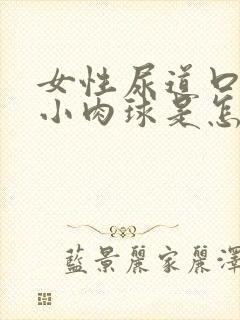 女性尿道口
小肉球是怎
藍景麗家麗澤